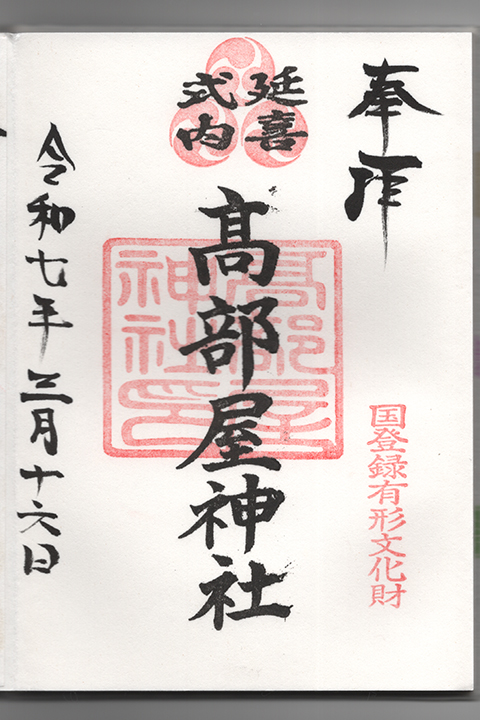 奉拝
国登録有形文化財
延喜
式内
髙部屋神社
髙部屋
神社印
令和七年三月十六日